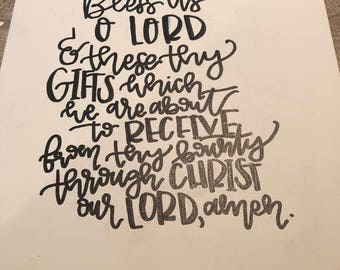 Bless us
O LORD
& these thy
GIFTS which
we are about
to RECEIVE
from thy bounty
through CHRIST
our LORD, amen.